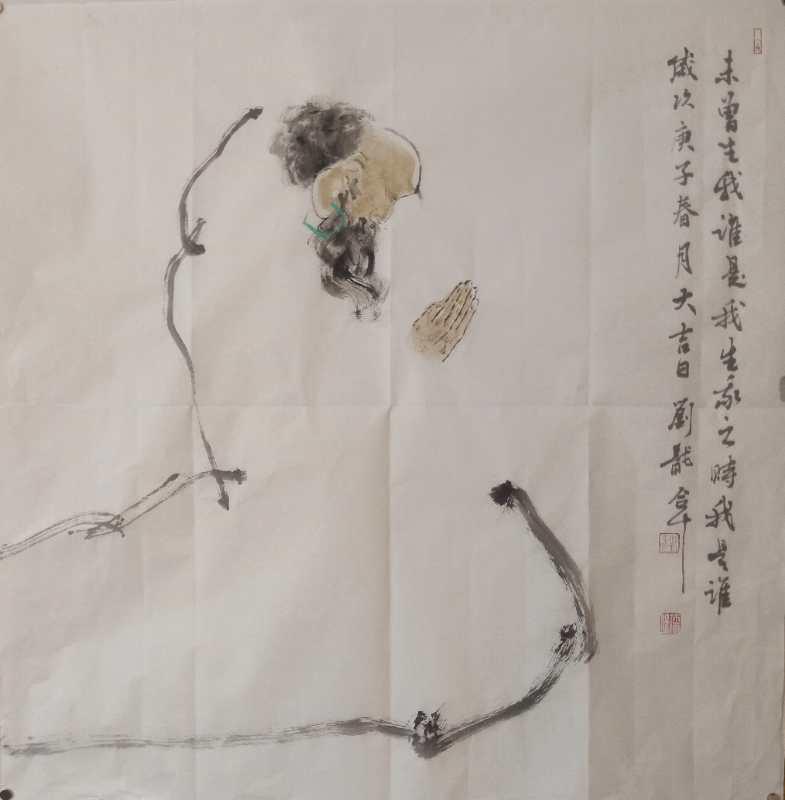 未曾生我谁是我生我之時我是谁
歲次庚子春月大吉日劉龍合